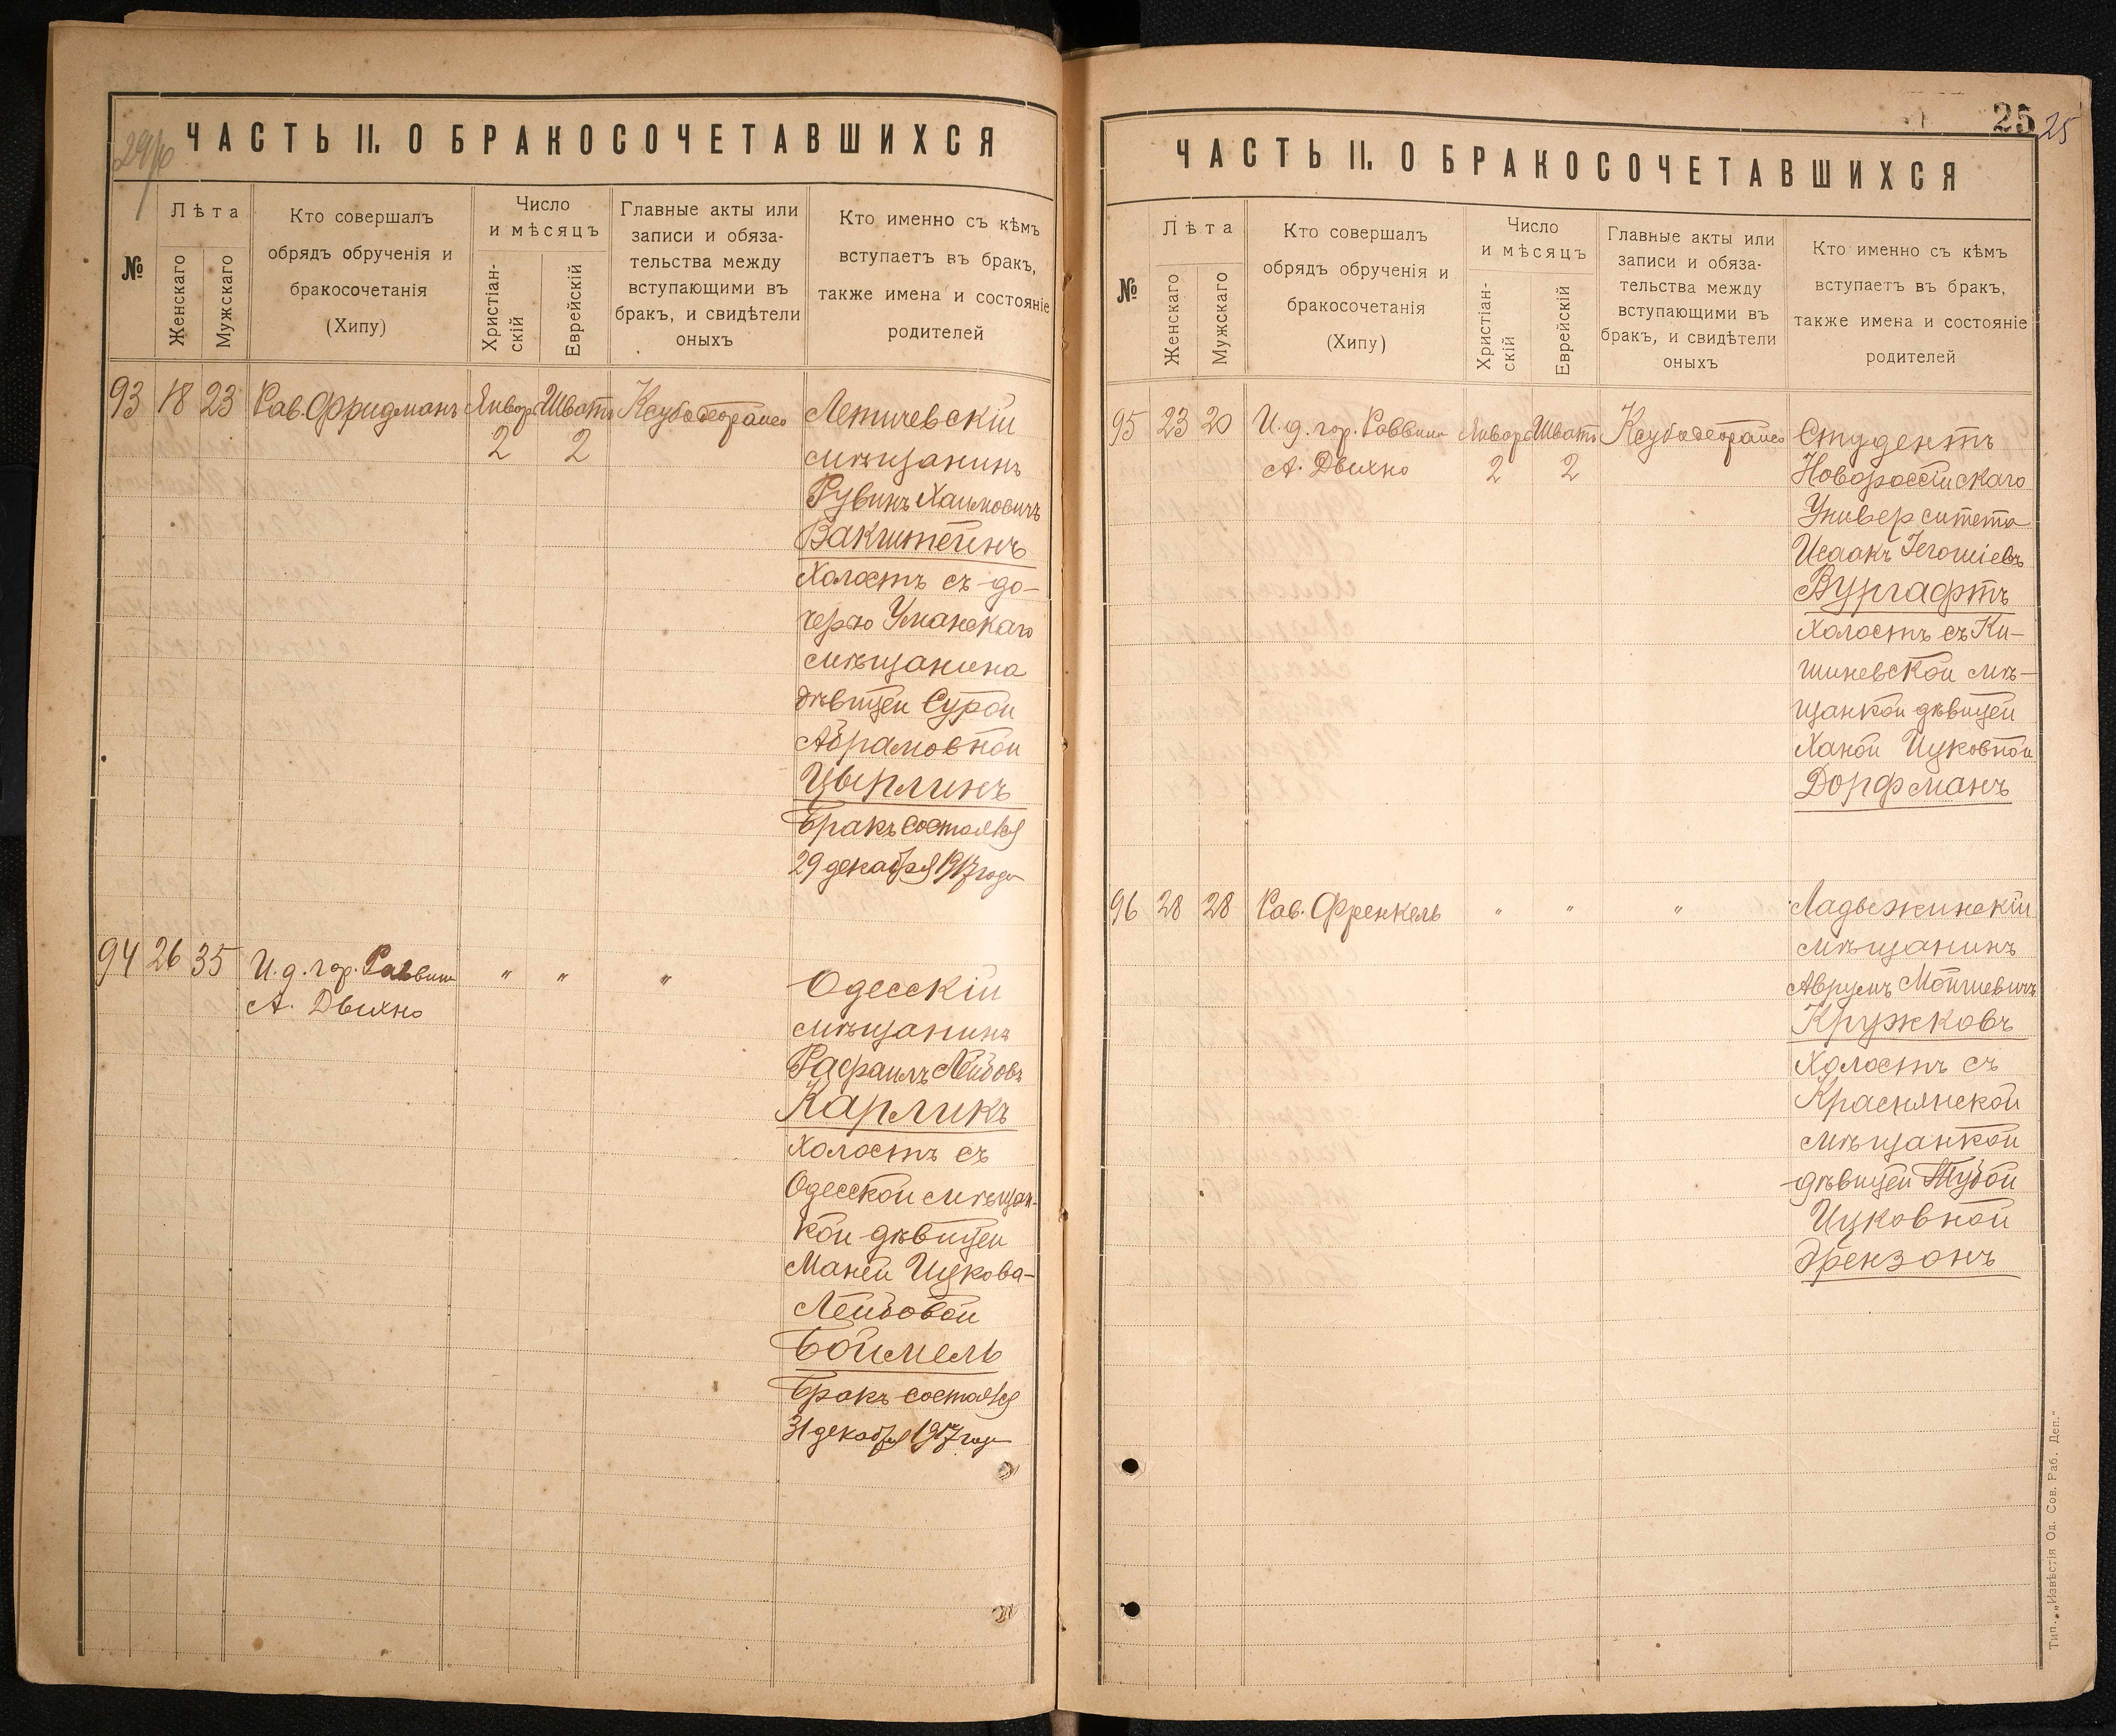 ЧАСТЬ II. О БРАКОСОЧЕТАВШИХСЯ
№
Лѣта
Женскаго
Мужскаго
Кто совершалъ
обрядъ обрученія и
бракосочетанія
(Хипу)
Число
и мѣсяцъ
Христіан-
скій
Еврейскій
Главные акты или
записи и обяза-
тельства между
вступающими въ
бракъ, и свидѣтели
оныхъ
Кто именно съ кѣмъ
вступаетъ въ бракъ,
также имена и состояніе
родителей
93 18 23 Рав. Фридманъ Январь Шватъ
2 2
Летичевскій
мѣщанинъ
Рувинъ Хаимовичъ
Вакштейнъ
Холостъ съ до-
черью Уманскаго
мѣщанина
дѣвицей Сурой
Абрамовной
Цырлинъ
Бракъ состоялся
29 декабря 1917 года
94 26 35 И. д. гор. Раввина " " "
А. Двихно
Одесскій
мѣщанинъ
Рафаилъ Лейбовъ
Карликъ
Холостъ съ
Одесской мѣщан-
кой дѣвицей
Маней Ицкова-
Лейбовой
Боймель
Бракъ состоялся
31 декабря 1917 года
25
25
ЧАСТЬ II. О БРАКОСОЧЕТАВШИХСЯ
№
Лѣта
Женскаго
Мужскаго
Кто совершалъ
обрядъ обрученія и
бракосочетанія
(Хипу)
Число
и мѣсяцъ
Христіан-
скій
Еврейскій
Главные акты или
записи и обяза-
тельства между
вступающими въ
бракъ, и свидѣтели
оныхъ
Кто именно съ кѣмъ
вступаетъ въ бракъ,
также имена и состояніе
родителей
95 23 20 И. д. гор. Раввина Январь Шватъ
А. Двихно 2 2
Студентъ
Новороссійскаго
Университета
Исаакъ Іегошіевъ
Вургафтъ
Холостъ съ Ки-
шиневской мѣ-
щанкой дѣвицей
Ханой Ицковной
Дорфманъ
96 28 28 Рав. Френкель " " "
Ладыжинскій
мѣщанинъ
Аврумъ Мойшевичъ
Кружковъ
Холостъ съ
Краснянской
мѣщанкой
дѣвицей Тубой
Ицковной
Эрензонъ
Тип. „Извѣстія Од. Сов. Раб. Деп."